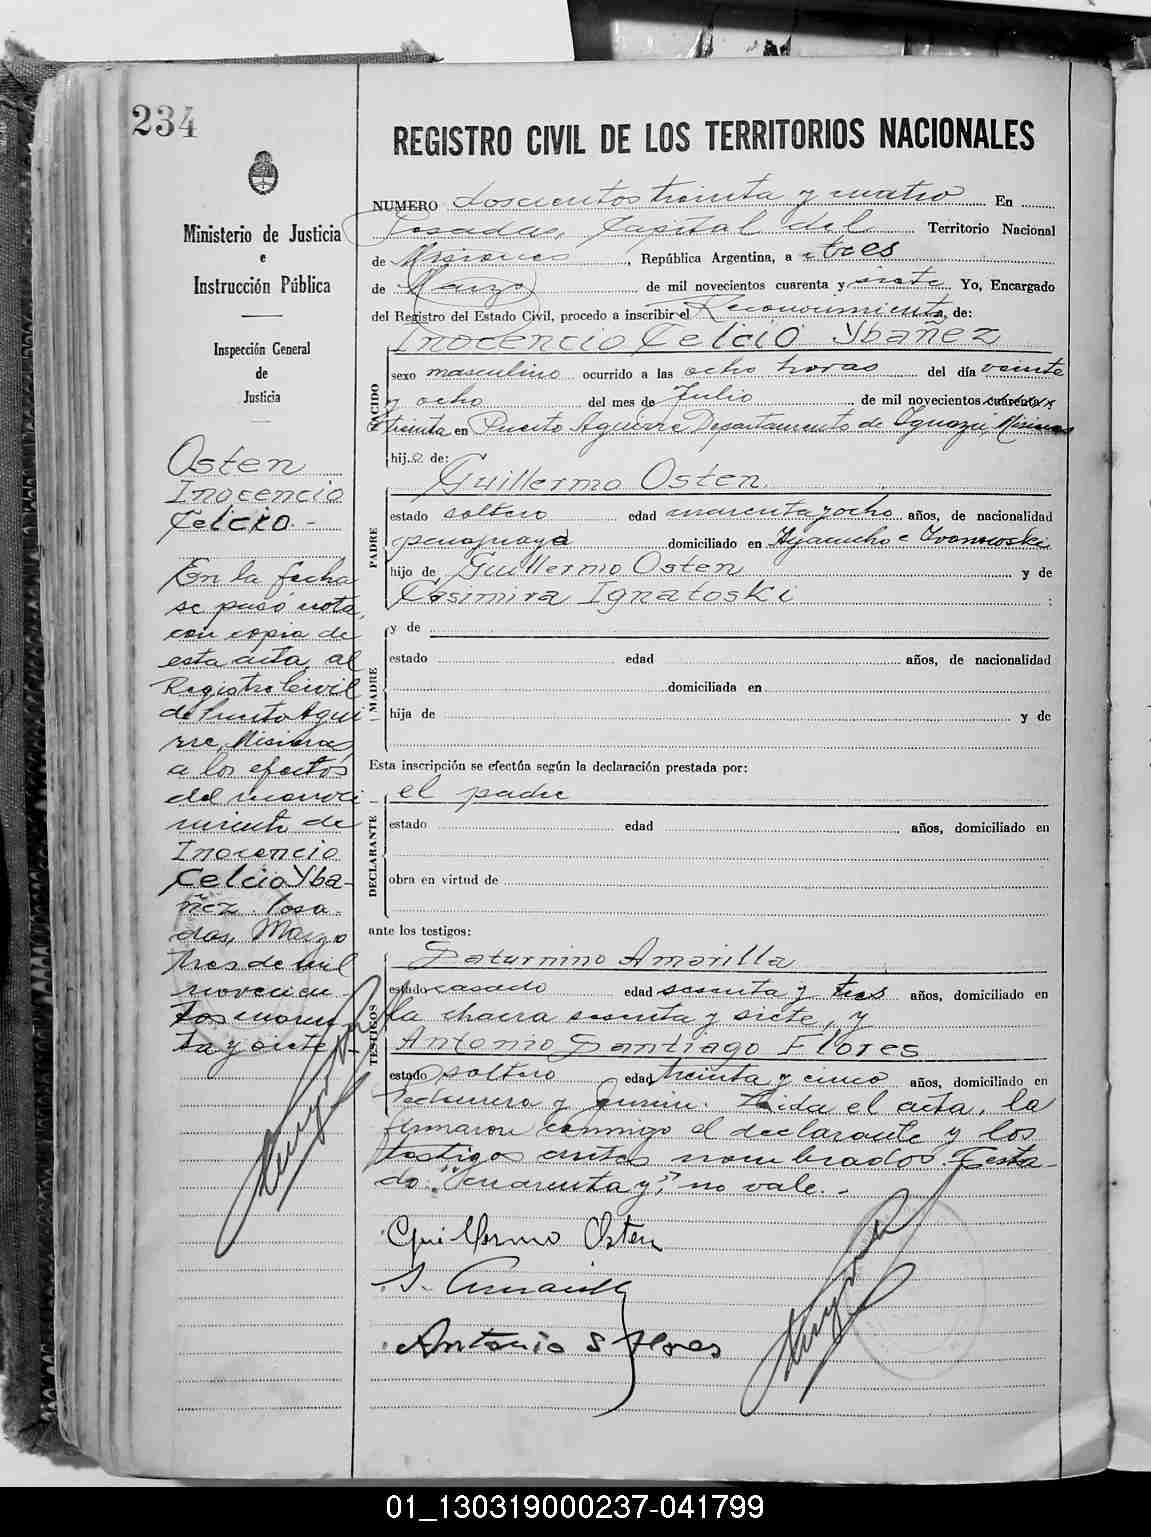 234
Ministerio de Justicia
e
Instrucción Pública
Inspección General
de
Justicia
Osten
Inocencio
Celcio.-
En la fecha
se pasó nota,
con copia de
esta acta, al
Registro Civil
de Puerto Agui
rre, Misiones,
a los efectos
del reconoci
miento de
Inocencio
Celcio Yba-
ñez. Posa
das, Marzo
tres de mil
novecien
tos cuaren
ta y siete.-
REGISTRO CIVIL DE LOS TERRITORIOS NACIONALES
NUMERO doscientos treinta y cuatro En
Posadas, Capital del Territorio Nacional
de Misiones, República Argentina, a tres
de Marzo de mil novecientos cuarenta y siete Yo, Encargado
del Registro del Estado Civil, procedo a inscribir el Reconocimiento, de:
Inocencio Celcio Ybañez
NACIDO
sexo masculino ocurrido a las ocho horas del día veinte
y ocho del mes de Julio de mil novecientos cuarenta y
treinta en Puerto Aguirre Departamento de Iguazú, Misiones
hijo de:
Guillermo Osten
PADRE
estado soltero edad cuarenta y ocho años, de nacionalidad
paraguaya domiciliado en Ayacucho e
hijo de Guillermo Osten y de
Casimira Ignatoski :
MADRE
y de
estado edad años, de nacionalidad
domiciliada en
hija de y de
Esta inscripción se efectúa según la declaración prestada por:
DECLARANTE
el padre
estado edad años, domiciliado en
obra en virtud de
ante los testigos:
TESTIGOS
Saturnino Amarilla
estado casado edad sesenta y tres años, domiciliado en
la chacra sesenta y siete, y
Antonio Santiago Flores
estado soltero edad treinta y cinco años, domiciliado en
y Leida el acta, la
firmaron conmigo el declarante y los
testigos antes nombrados. Testa-
do: "cuarenta y", no vale.-
Guillermo Osten
S. Amarilla
Antonio S Flores
01_130319000237-041799